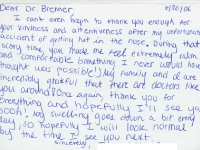 Dear Dr. Bremer 9/20/06
I can't even begin to thank you enough for
your kindness and attentiveness after my unfortunate
accident of getting hit on the nose. During that
scary time, you made me feel extremely calm
and "comfortable" (something I never would have
thought was possible!) My family and I are
incredibly grateful that there are doctors like
you around! Once again, thank you for
everything and hopefully I'll see you
soon! My swelling goes down a bit every
day, so hopefully I will look normal
by the time I see you next.
Sincerely,